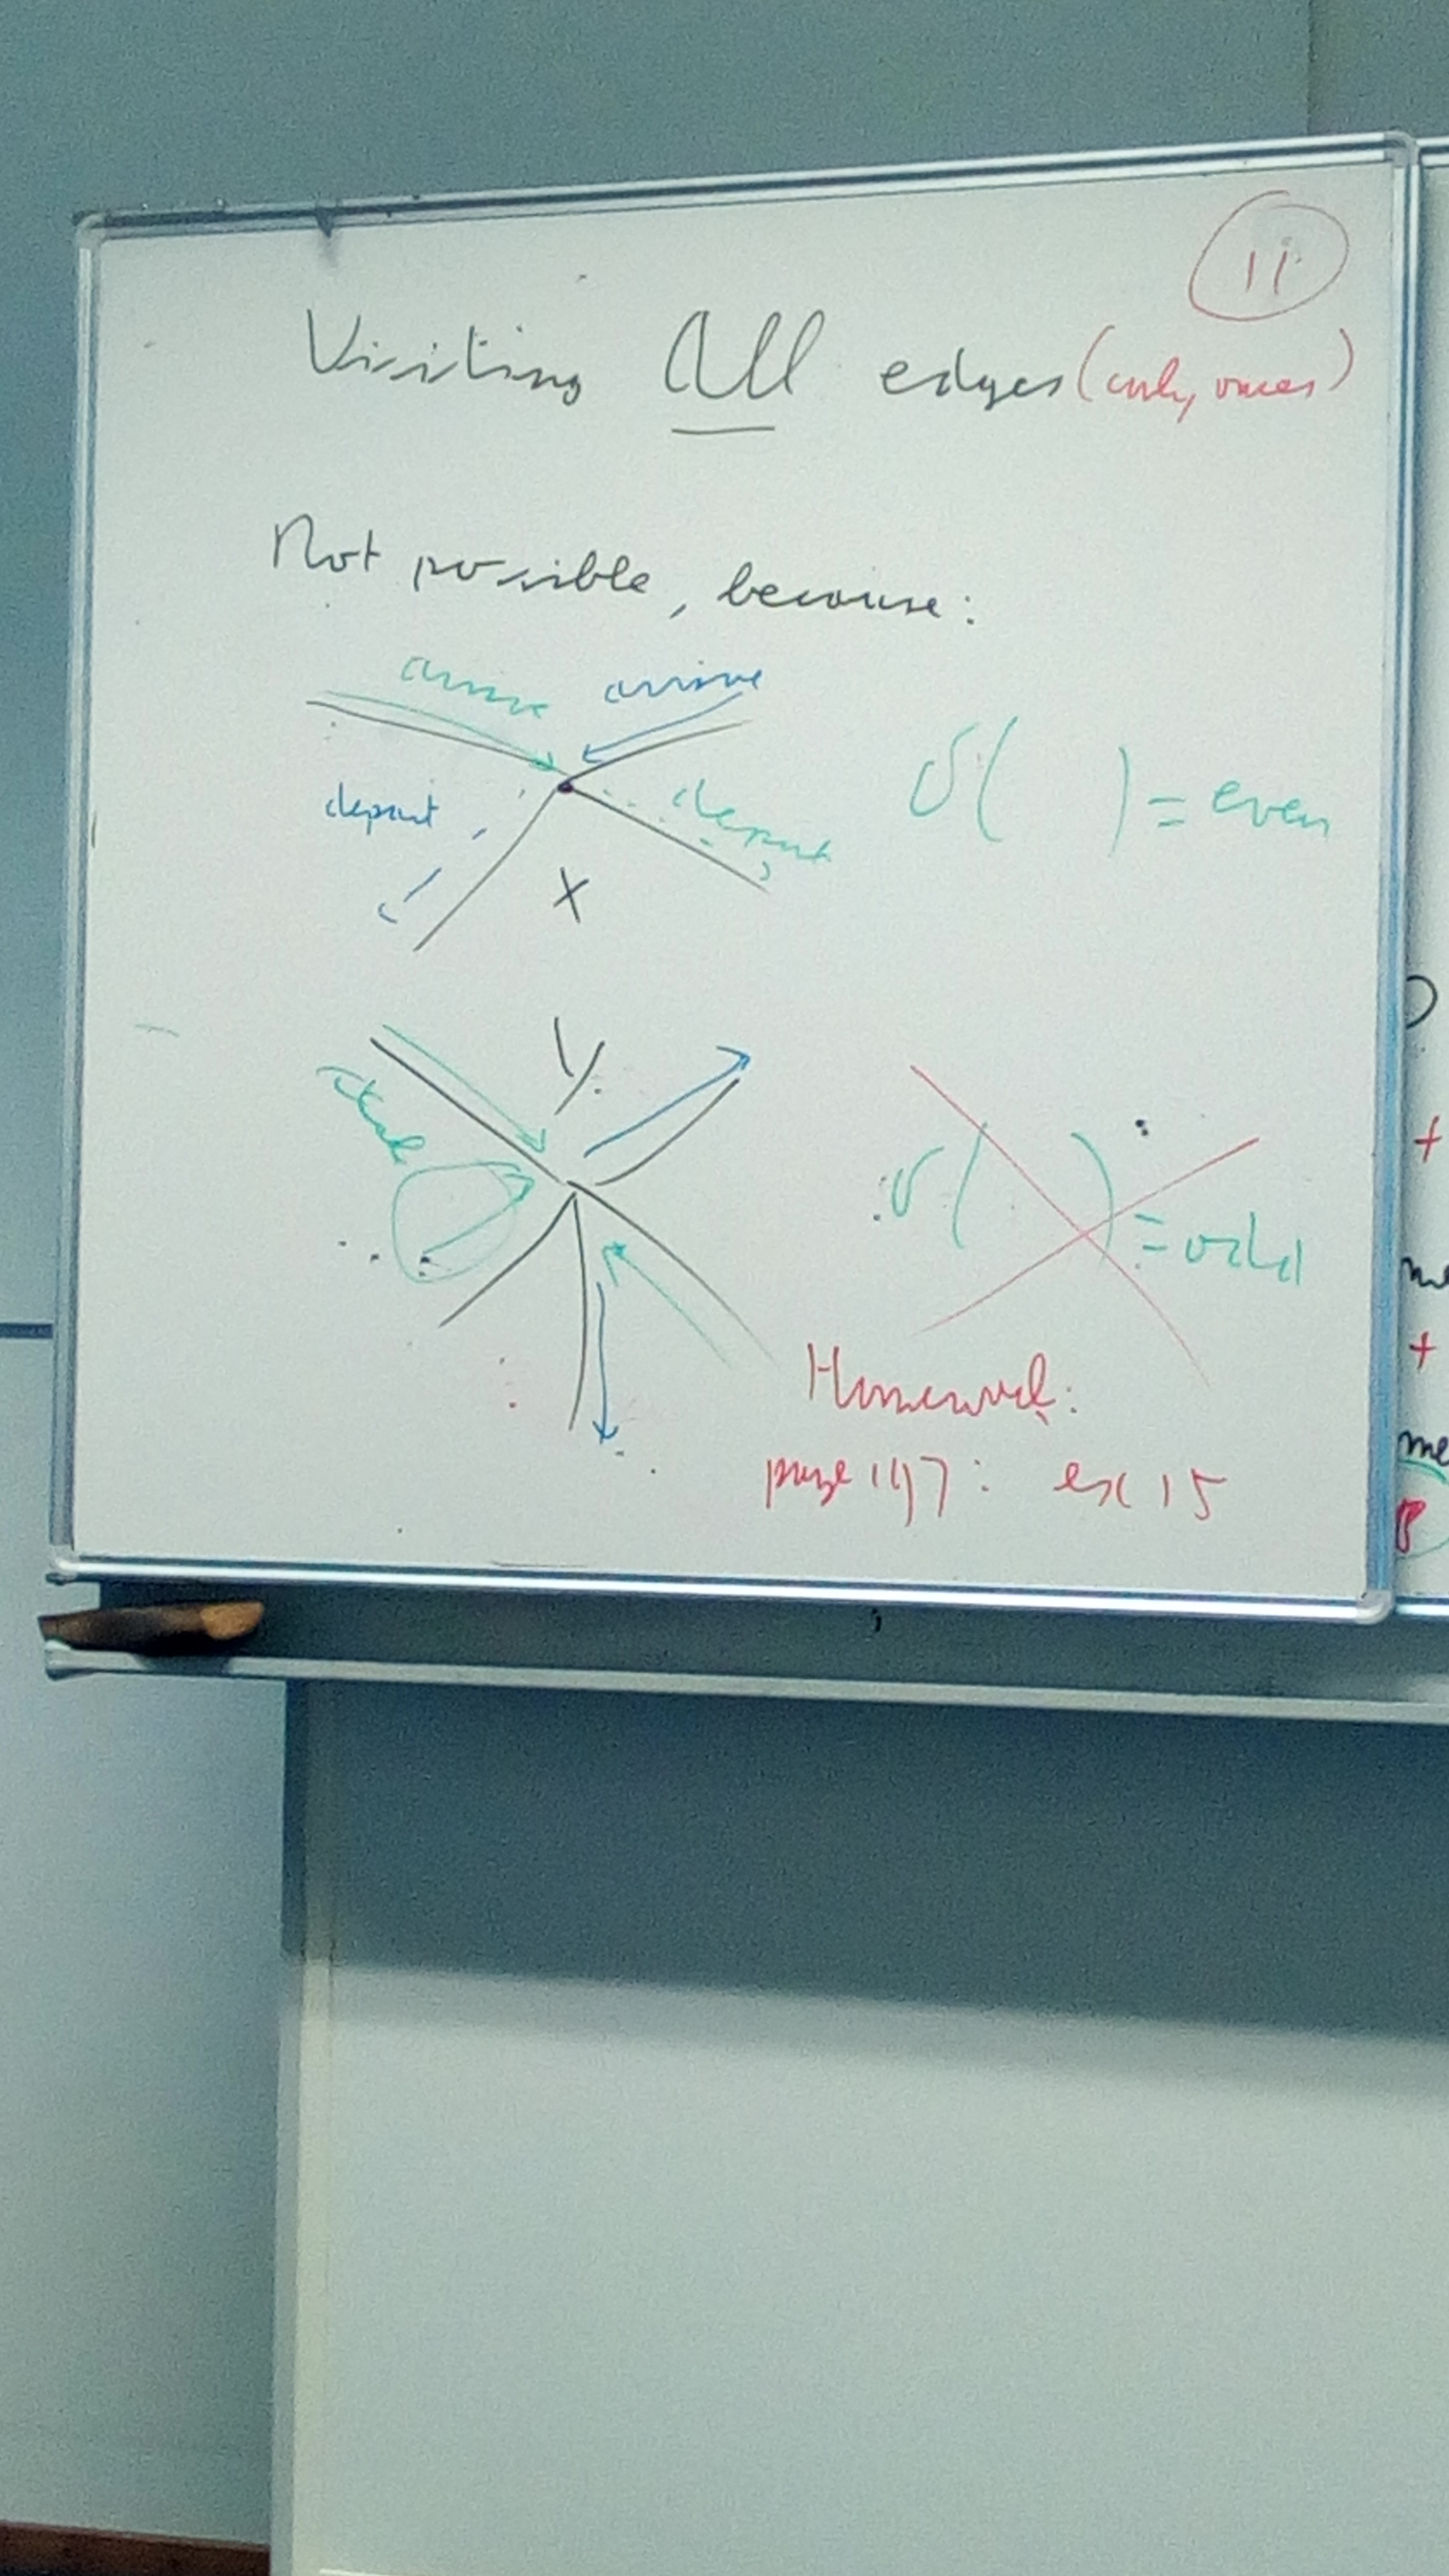 11
Visiting All edges (only once)
Not possible, because:
arrive arrive
depart depart
δ( ) = even
X
Y
δ( ) = odd
Homework:
page 197: ex 15
+
me
+
me